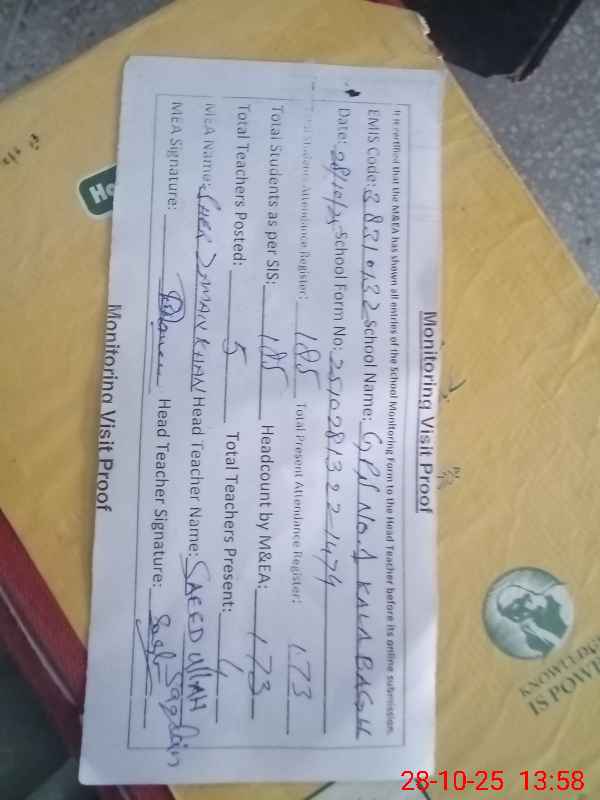 Monitoring Visit Proof
It is certified that the M&EA has shown all entries of the School Monitoring Form to the Head Teacher before its online submission.
EMIS Code: 38310132 School Name: GPS No.1 KALABAGH
Date: 28/10/25 School Form No: 2510281322-1479
Students Attendance Register: 185 Total Present Attendance Register: 173
Total Students as per SIS: 185 Headcount by M&EA: 173
Total Teachers Posted: 5 Total Teachers Present: 4
MEA Name: SHER ZMAN KHAN Head Teacher Name: SAEED ULLAH
MEA Signature: Head Teacher Signature:
Monitoring Visit Proof
KNOWLEDGE
IS POWE
28-10-25 13:58